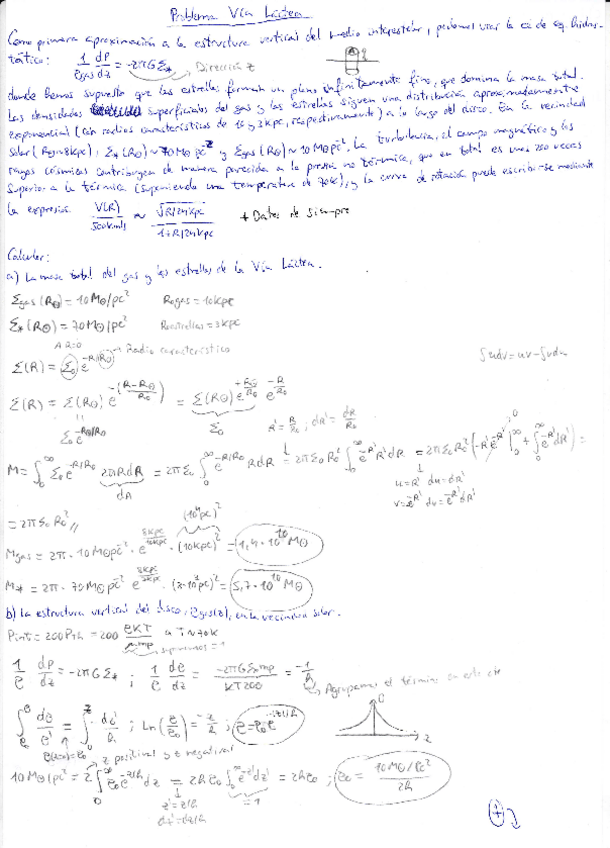 Problema Vía Láctea
Como primera aproximación a la estructura vertical del medio interestelar, podemos usar la ec de eq. hidros-
tático: 1/ρgas dP/dz = -2πGΣ* Dirección z
donde hemos supuesto que las estrellas forman un plano infinitamente fino, que domina la masa total.
Las densidades superficiales del gas y las estrellas siguen una distribución aproximadamente
exponencial (con radios característicos de 10 y 3kpc, respectivamente) a lo largo del disco. En la vecindad
solar (R⊙≈8kpc), Σ*(R⊙) ~ 70 M⊙ pc⁻² y Σgas(R⊙) ~ 10 M⊙ pc⁻². La turbulencia, el campo magnético y los
rayos cósmicos contribuyen de manera parecida a la presión no térmica, que en total es unas 200 veces
superior a la térmica (suponiendo una temperatura de 70K), y la curva de rotación puede escribir-se mediante
la expresión V(R)/500km/s ≈ √R/24kpc / 1+R/24kpc + Datos de siempre
Calcular:
a) La masa total del gas y las estrellas de la Vía Láctea.
Σgas(R⊙) = 10M⊙/pc² Rogas = 10kpc
Σ*(R⊙) = 70M⊙/pc² Roestrellas = 3kpc
A R=0 Radio característico
Σ(R) = Σ₀ e^(-R/R₀) ∫udv = uv - ∫vdu
Σ(R) = Σ(R⊙) e^(-(R-R⊙)/R₀) = Σ(R⊙) e^(R⊙/R₀) e^(-R/R₀)
Σ₀ e^(-R⊙/R₀) Σ₀ R' = R/R₀ ; dR' = dR/R₀
M = ∫₀^∞ Σ₀ e^(-R/R₀) 2πRdR = 2πΣ₀ ∫₀^∞ e^(-R/R₀) RdR = 2πΣ₀R₀² ∫₀^∞ e^(-R') R'dR' = 2πΣ₀R₀² (-R'e^(-R')|₀^∞ + ∫₀^∞ e^(-R')dR') =
dA u=R' du=dR'
v=-e^(-R') dv=e^(-R')dR'
= 2πΣ₀R₀² (10⁴pc)²
Mgas = 2π · 10M⊙pc⁻² · e^(8kpc/10kpc) · (10kpc)² = 1,4·10¹⁰ M⊙
M* = 2π · 70M⊙pc⁻² e^(8kpc/3kpc) · (3·10³pc)² = 5,7·10¹⁰ M⊙
b) La estructura vertical del disco, ρgas(z), en la vecindad solar.
Pint = 200Pth = 200 ρKT/μmp a T≈70K
suponemos = 1
1/ρ dP/dz = -2πGΣ* ; 1/ρ dρ/dz = -2πGΣ*mp/KT200 = -1/h
Agrupamos el término en este cte
∫ρ₀^ρ dρ'/ρ' = ∫₀^z -dz'/h ; Ln(ρ/ρ₀) = -z/h ; ρ = ρ₀e^(-|z|/h)
ρ(z=0)=ρ₀ z positivas y z negativas
10M⊙/pc² = 2∫₀^∞ ρ₀e^(-z/h) dz = 2hρ₀ ∫₀^∞ e^(-z')dz' = 2hρ₀ ; ρ₀ = 10M⊙/pc² / 2h
z'=z/h = 1
dz'=dz/h